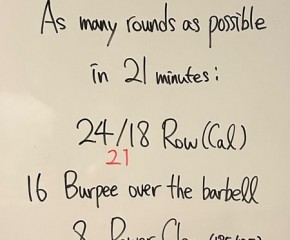 As many rounds as possible
in 21 minutes:
24/18 Row (Cal)
21
16 Burpee over the barbell
8 Power